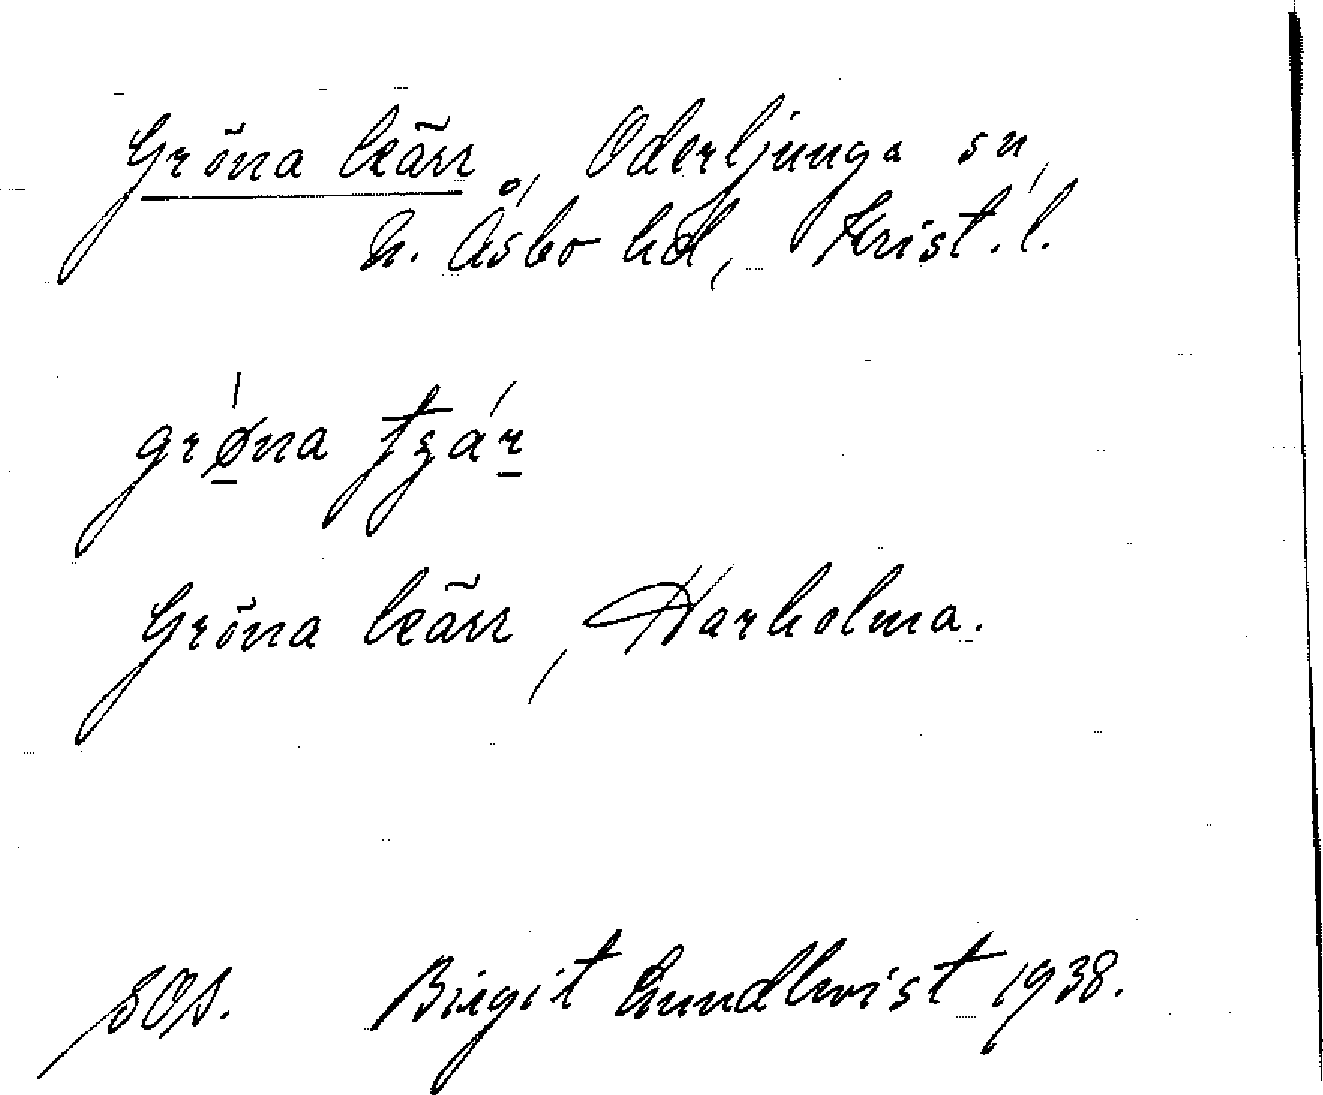 Gröna kärr, Oderljunga sn,
N. Åsbo hd, Krist. l.
grøna tʒár
Gröna kärr, Harholma.
SOA. Birgit Lundkvist 1938.